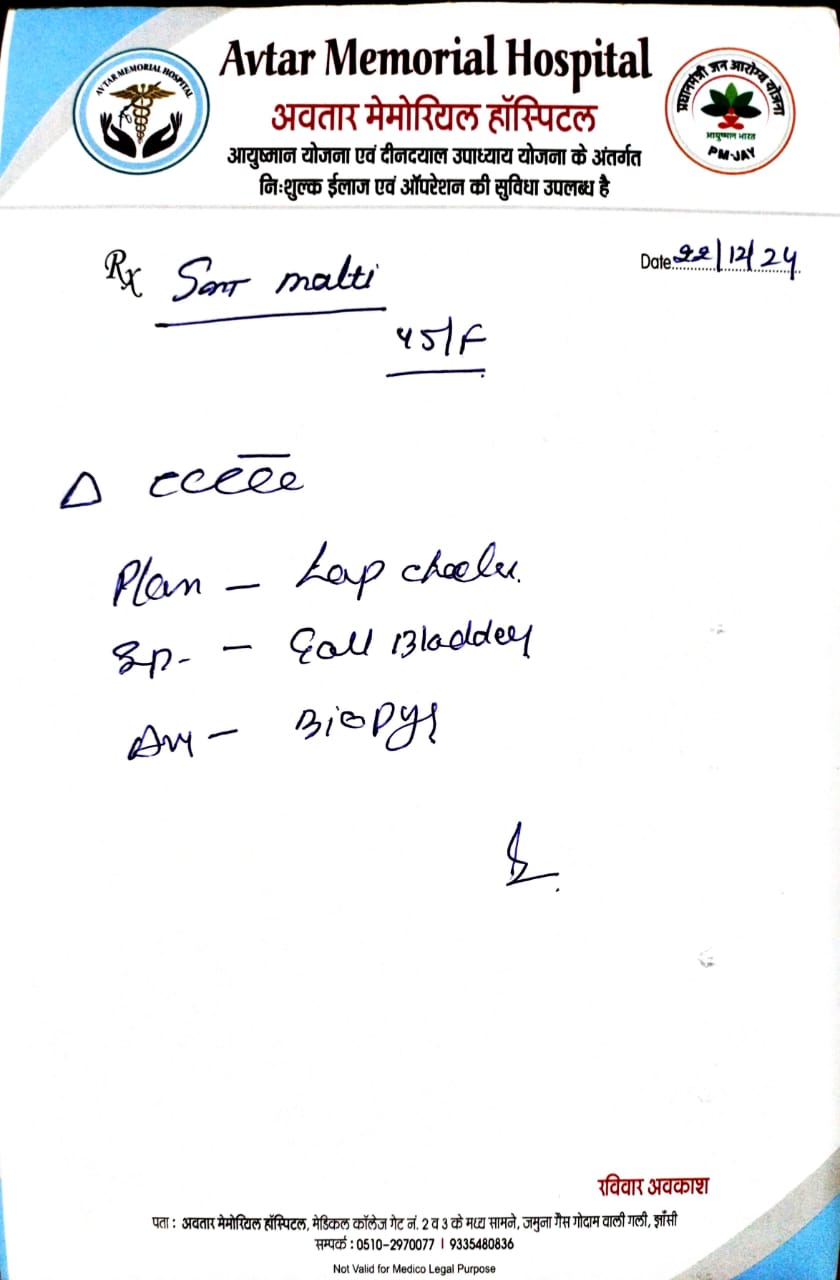 AVTAR MEMORIAL HOSPITAL
Avtar Memorial Hospital
अवतार मेमोरियल हॉस्पिटल
आयुष्मान योजना एवं दीनदयाल उपाध्याय योजना के अंतर्गत
निःशुल्क ईलाज एवं ऑपरेशन की सुविधा उपलब्ध है
प्रधानमंत्री जन आरोग्य योजना
आयुष्मान भारत
PM-JAY
Date 22/12/24
Rx Smt malti
45/F
Δ
Plan - Lap
- Gall Bladder
- Biopys
रविवार अवकाश
पता : अवतार मेमोरियल हॉस्पिटल, मेडिकल कॉलेज गेट नं. 2 व 3 के मध्य सामने, जमुना गैस गोदाम वाली गली, झाँसी
सम्पर्क : 0510-2970077 | 9335480836
Not Valid for Medico Legal Purpose